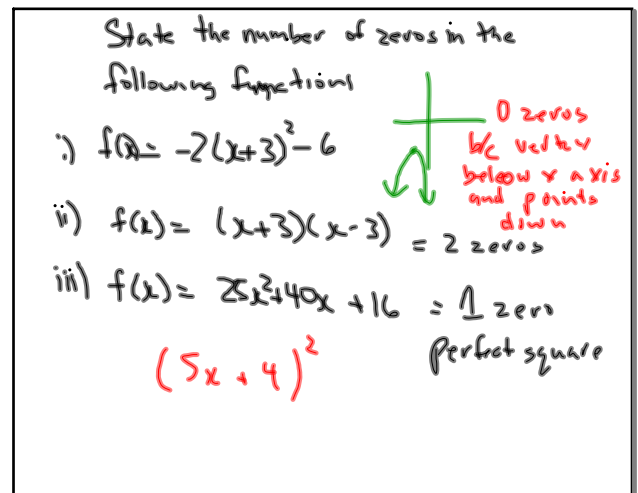 State the number of zeros in the
following functions
i) f(x) = -2(x+3)² - 6
0 zeros
b/c vertex
below x axis
and points
down
ii) f(x) = (x+3)(x-3) = 2 zeros
iii) f(x) = 25x²+40x+16 = 1 zero
perfect square
(5x+4)²